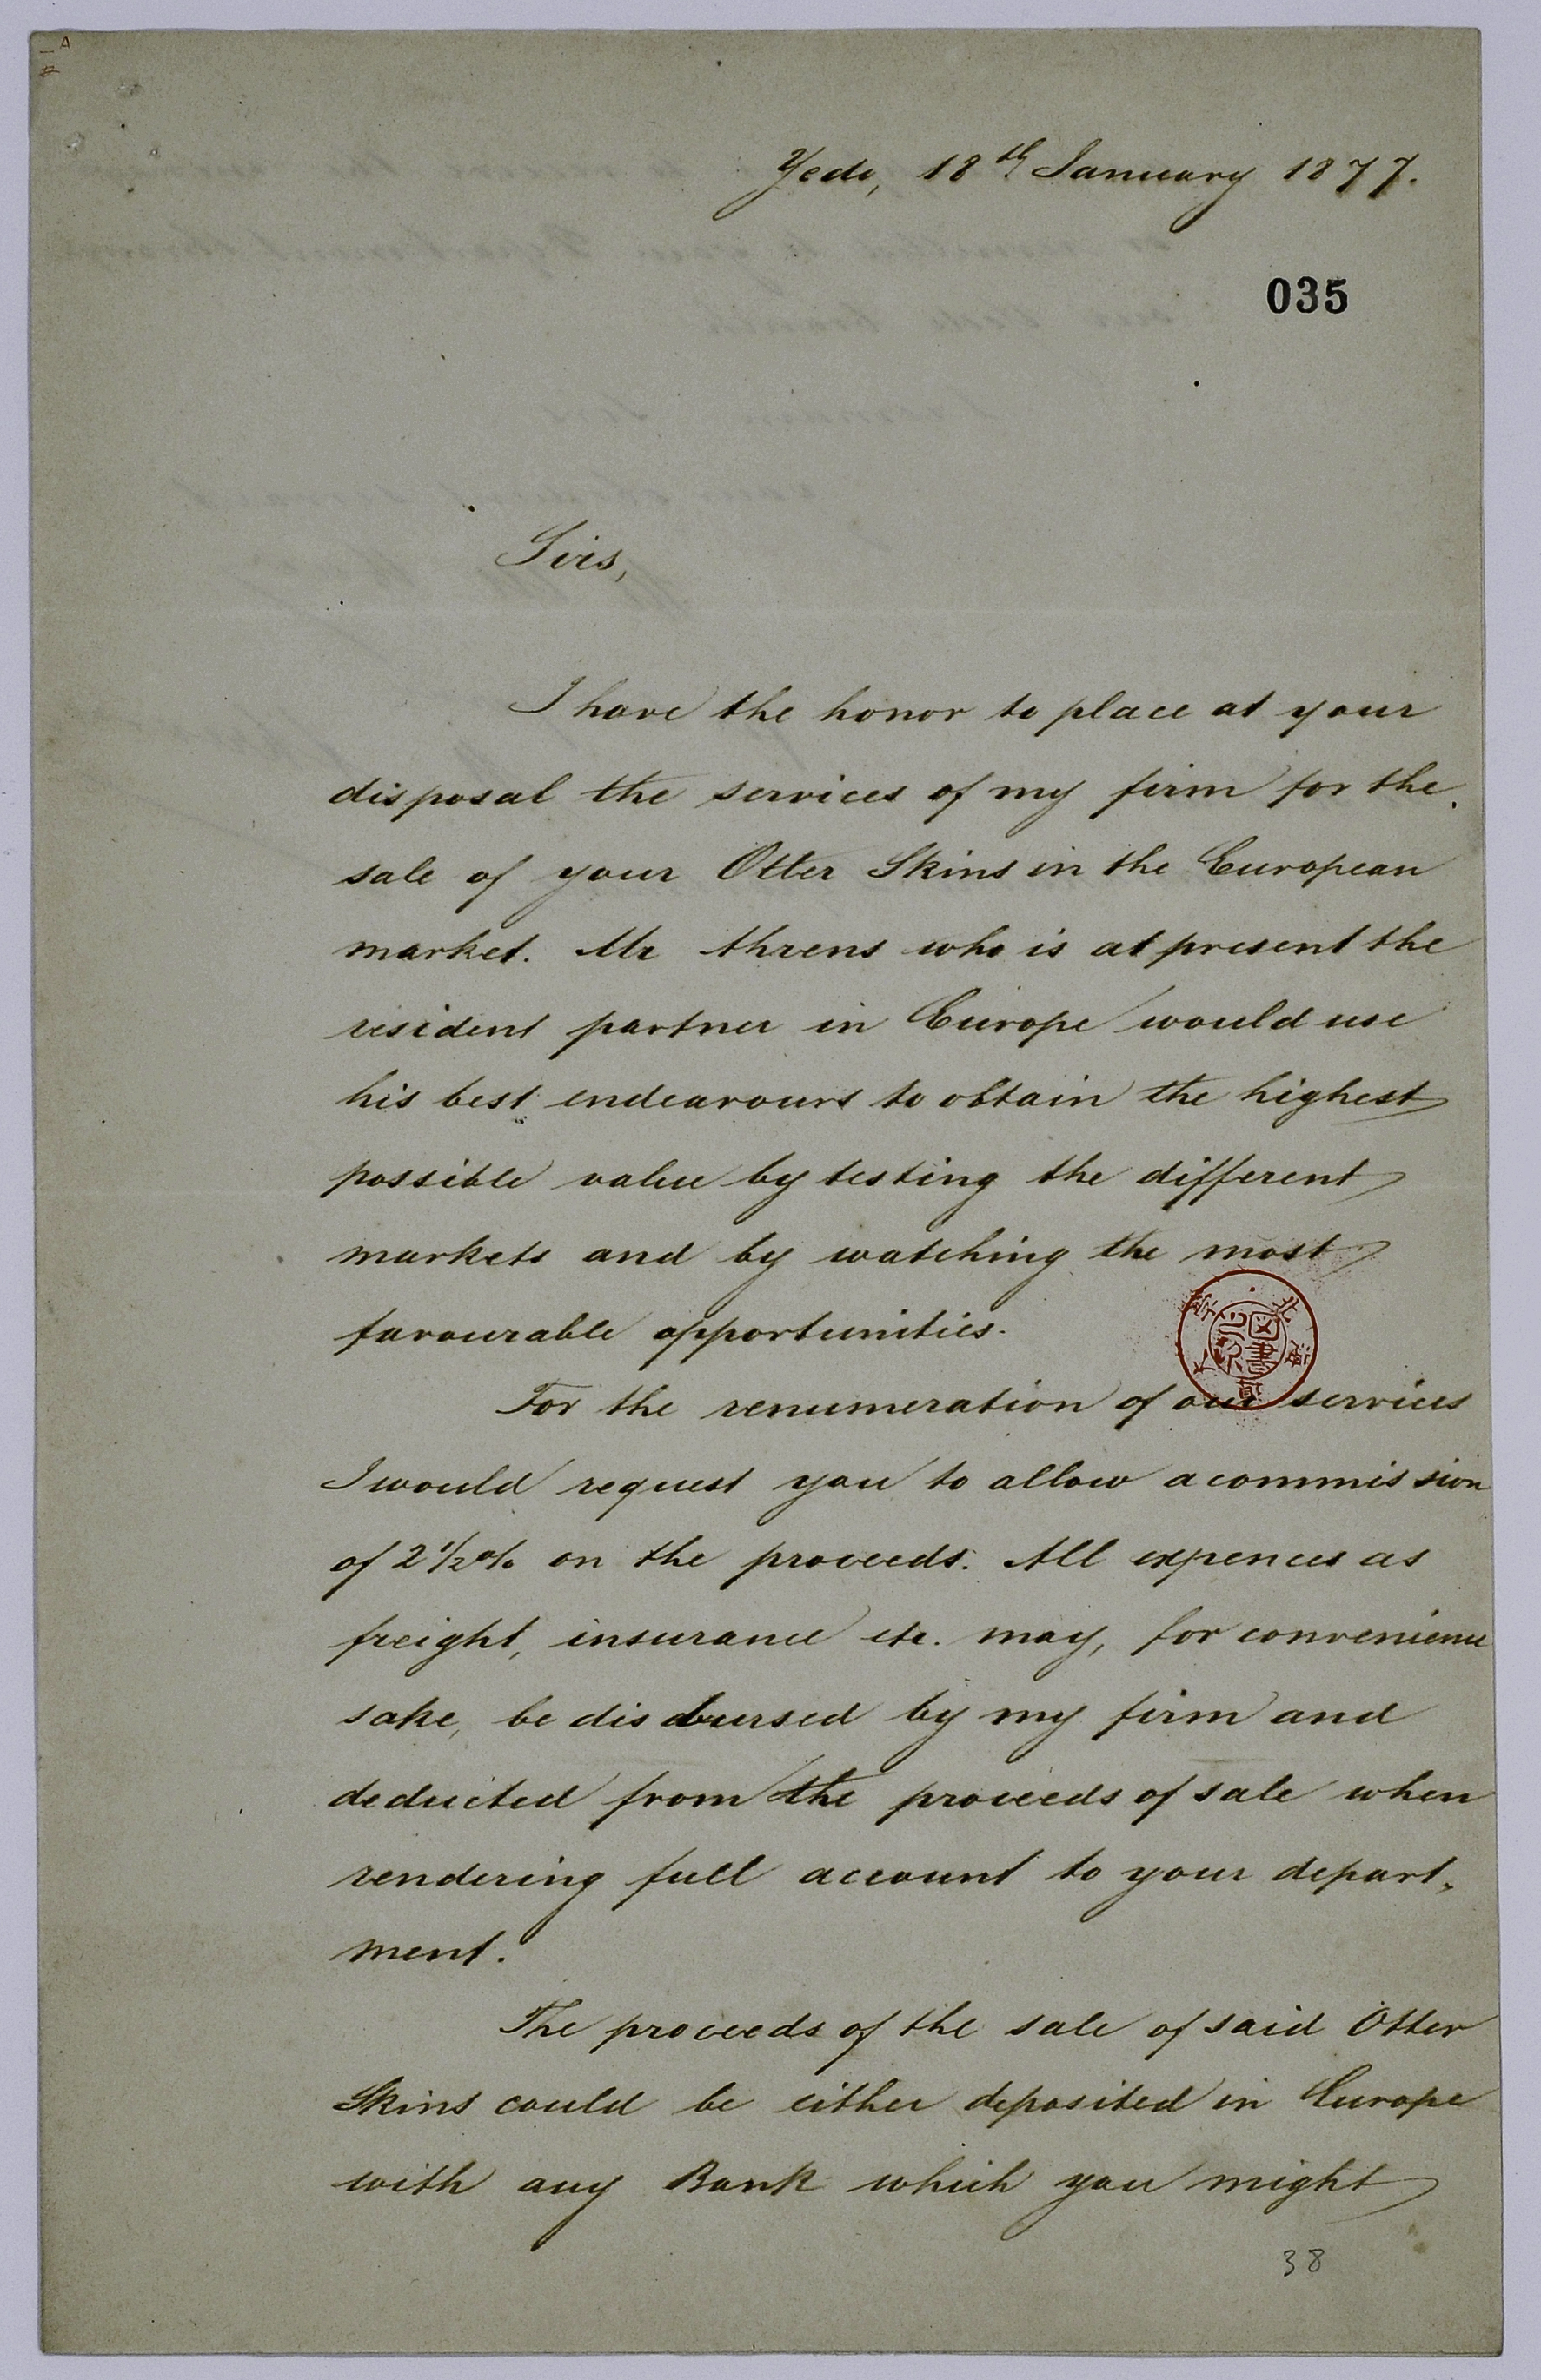 Yedo, 18th January 1877.
035
Sirs,
I have the honor to place at your
disposal the services of my firm for the
sale of your Otter Skins in the European
market. Mr Ahrens who is at present the
resident partner in Europe would use
his best endeavours to obtain the highest
possible value by testing the different
markets and by watching the most
favourable opportunities.
For the renumeration of our services
I would request you to allow a commission
of 2 1/2 % on the proceeds. All expences as
freight, insurance etc. may, for convenience
sake, be disbursed by my firm and
deducted from the proceeds of sale when
rendering full account to your depart,
ment.
The proceeds of the sale of said Otter
Skins could be either deposited in Europe
with any Bank which you might
38